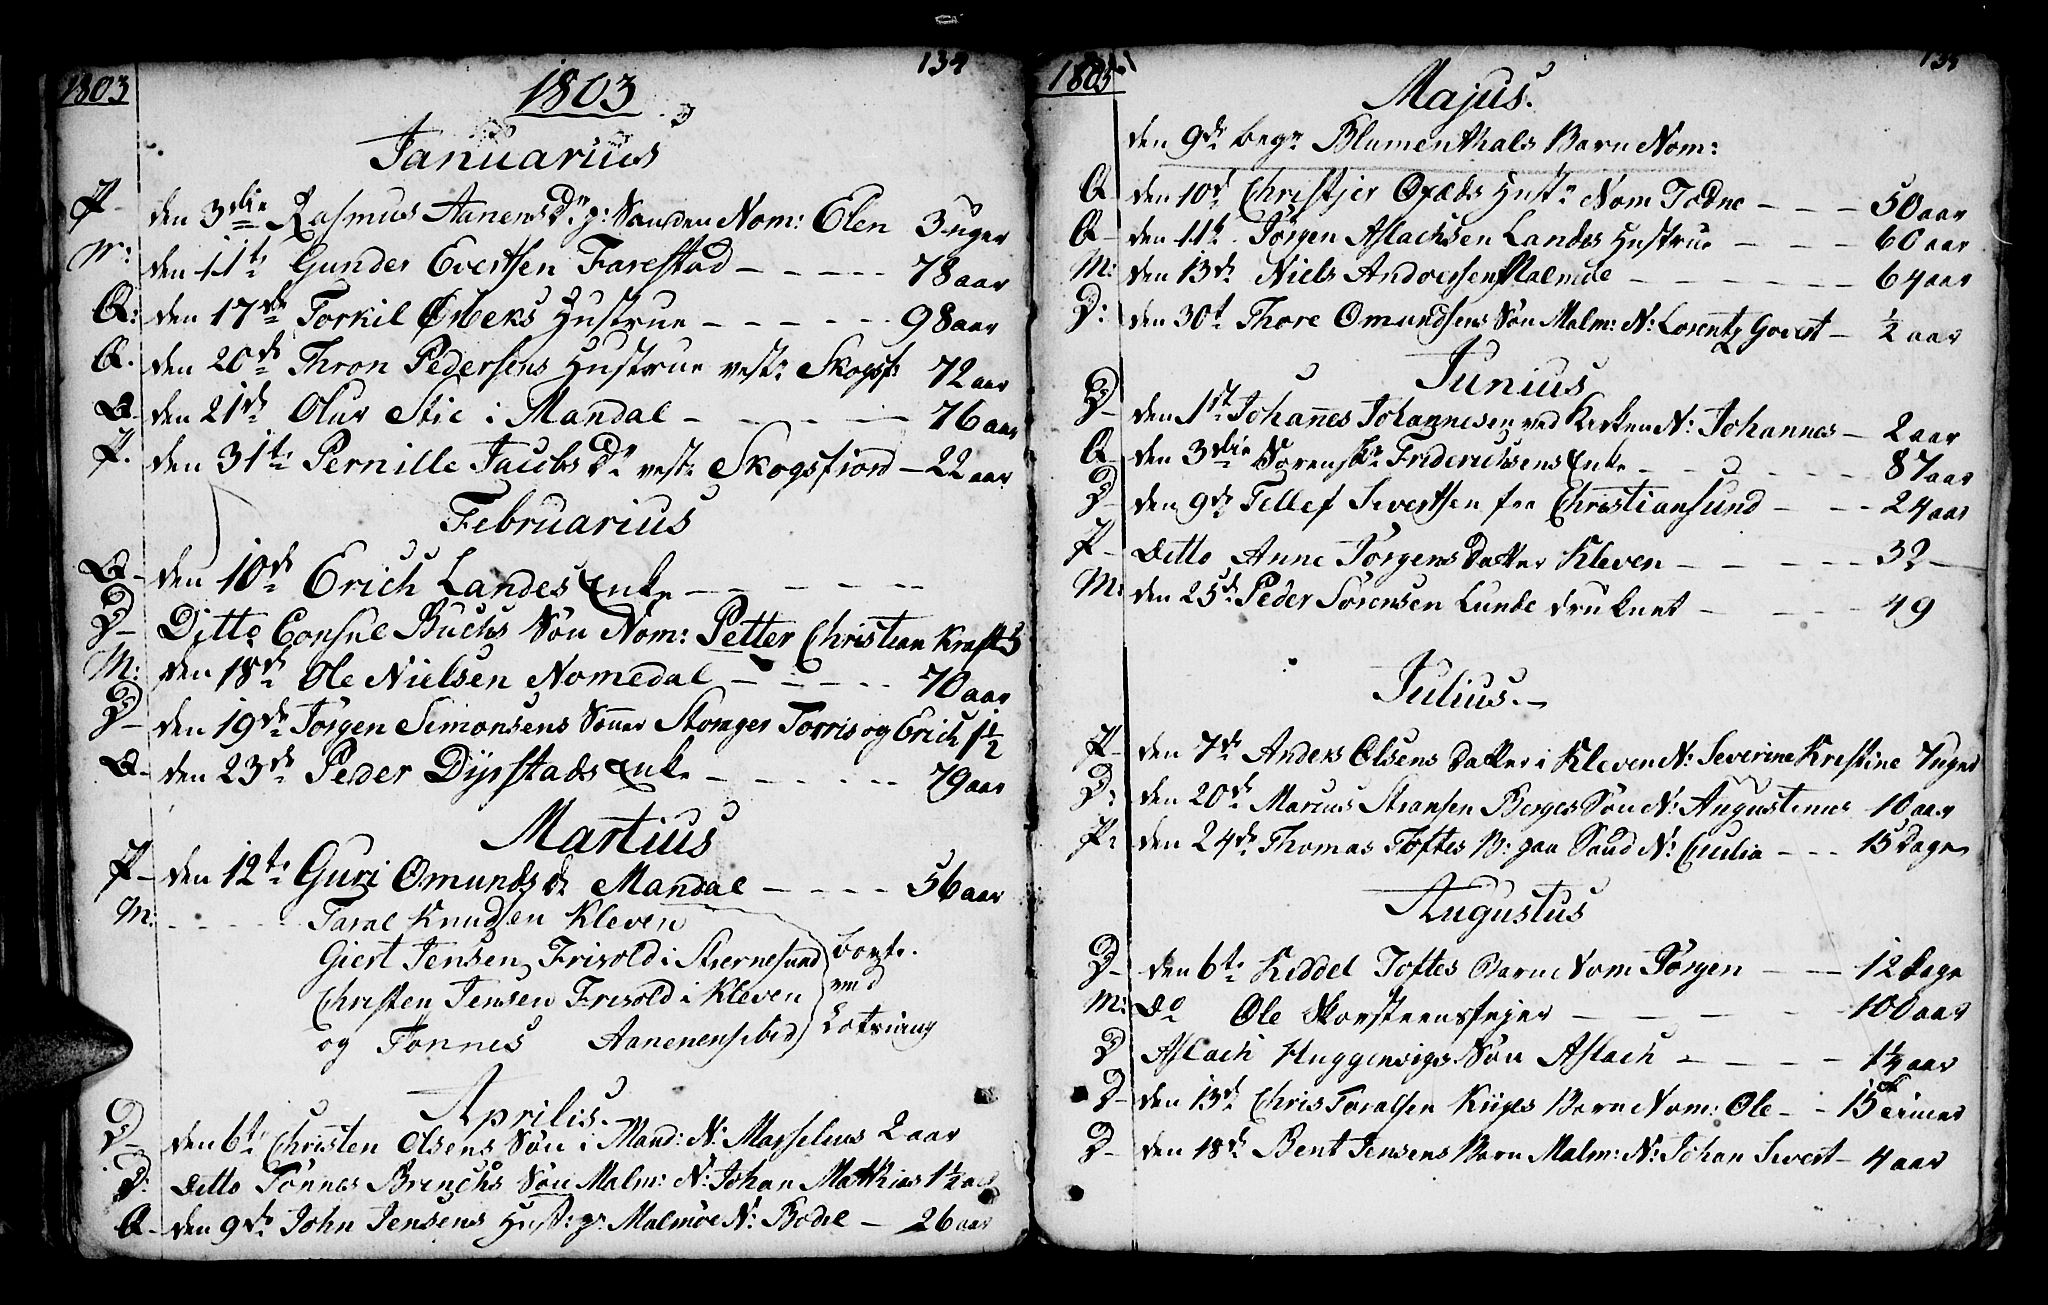 1803
1803
134
Januarius
P- den 3die Rasmus Aanensens Dr p: Sanden Nom: Elen 3 uger
M: den 11te Gunder Evertsen Farestad - - - - - 78 aar
Q: den 17de Torkil Øibeks Hustrue - - - - - 98 aar
Q. den 20de Thron Pedersens Hustrue vestr Skogsf: 72 aar
Q- den 21de Oluv Stie i Mandal - - - - 76 aar
P. den 31te Pernille Jacobs Dr vestr Skogsfiord - 22 aar
Februarius
Q- den 10de Erich Landes Enke - - - - -
D- Ditto Consul Buchs Søn Nom: Petter Christian Kraft
M: den 18de Ole Nielsen Nomedal - - - - - 70 aar
D- den 19de Jørgen Simonsens Sønner Torris og Erich 1 1/2
Q- den 23de Peder Dyrstads Enke - - - - - 79 aar
Martius
P- den 12te Guri Omunds dr Mandal - - - - 56 aar
M: - - - - Taral Knudsen Kleven
Giert Jensen Frisold i Stiernesund borte
Christen Jensen Frisold i Kleven ved
og Tønnes Aanensen ibid Lotsning
Aprilis.
D- den 6te Christen Olsens Søn i Mand: N: 2 aar
D: Ditto Tønnes Brinchs Søn Malm: N: Johan Mathias 1 1/2 aar
Q- den 9de John Jensens Hust: p: Malmøe N: Bodel - 26 aar
1803
Majus.
den 9de begr Blumenthals Barn Nom:
Q- den 10de Christjer Hustr Nom Todne - - - 50 aar
Q- den 11te Jørgen Aslachsen Landes Hustrue - - - 60 aar
M: den 13de Niels Andersen Malmøe - - - - - - 64 aar
D: den 30t Thore Omundsens Søn Malm: N: Lorentz Govert - 1/2 aar
Junius
D- den 1ste Johannes Johannesen ved Kirken N: Johannes - 2 aar
Q- den 3die Sorenskr Friderichsens Enke - - - - - 87 aar
D- den 9de Tellef Sivertsen fra Christiansund - - - 24 aar
P- Ditto Anne Jørgens Datter Kleven - - - - - 32 -
M: den 25de Peder Sørensen Lunde druknet - - - - 49
Julius. -
P- den 7de Anders Olsens Datter i Kleven N: Severine Kristine 7 uger
D: den 20de Marcus Stransen Berges Søn N: Augustinus 10 aar
P: den 24de Thomas Toftes B: paa Sand N: Cecilia - - - 15 dage
Augustus
D- den 6te Kiddel Toftes Barn Nom Jørgen - - - 12 dage
M: Do Ole Skorsteensfejer - - - - - 100 aar
D Aslach Huggensigs Søn Aslach - - - - 1 1/4 aar
D- den 13de Chris Taralsen Kiiges Barn Nom: Ole - - 15 timer
D- den 18de Bent Jensens Barn Malm: N: Johan Sivert - 4 aar